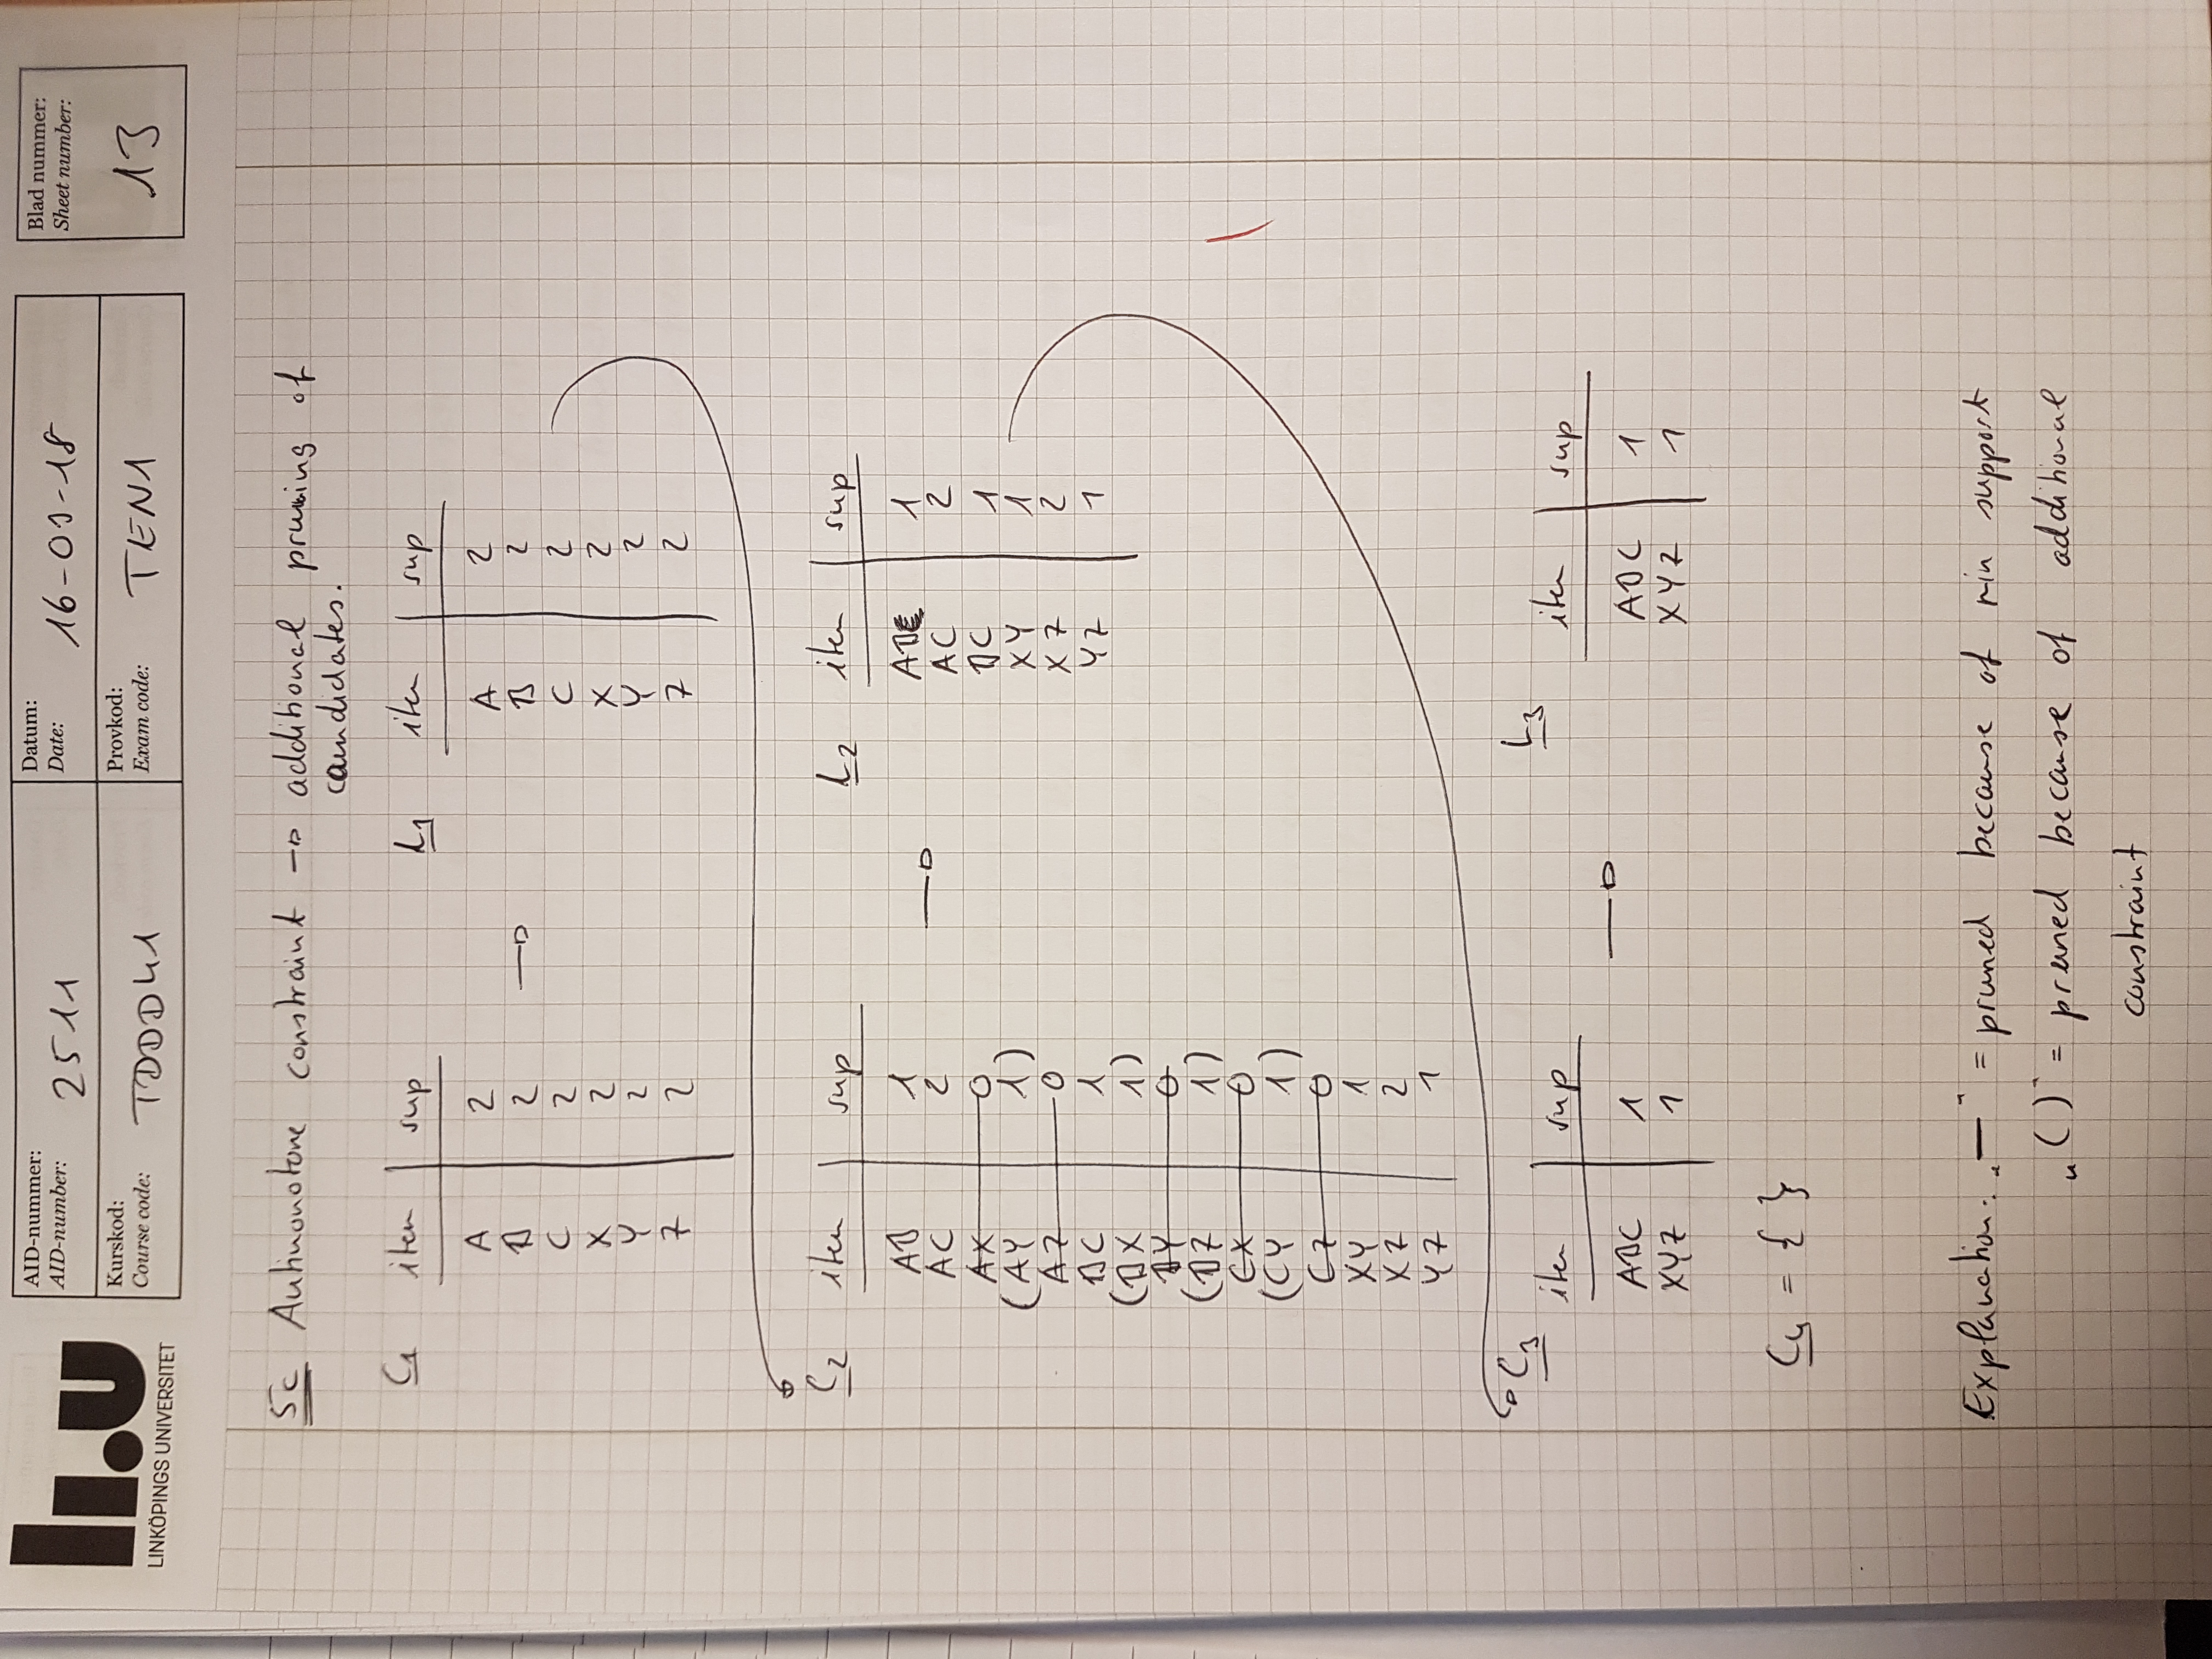 li.u
LINKÖPINGS UNIVERSITET
AID-nummer:
AID-number: 2511
Datum:
Date: 16-09-18
Kurskod:
Course code: TDDD41
Provkod:
Exam code: TEN1
Blad nummer:
Sheet number:
13
5c Antimonotone constraint → additional pruning of
candidates.
C1 item sup
A 2
B 2
C 2
X 2
Y 2
Z 2
→
L1 item sup
A 2
B 2
C 2
X 2
Y 2
Z 2
C2 item sup
AB 1
AC 2
AX 0
(AY 1)
AZ 0
BC 1
(BX 1)
BY 0
(BZ 1)
CX 0
(CY 1)
CZ 0
XY 1
XZ 2
YZ 1
→
L2 item sup
AB 1
AC 2
BC 1
XY 1
XZ 2
YZ 1
C3
item sup
ABC 1
XYZ 1
→
L3
item sup
ABC 1
XYZ 1
C4 = { }
Explanation: „—" = pruned because of min support
„( )" = pruned because of additional
constraint